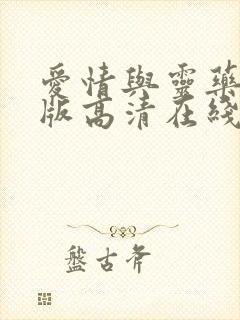 愛情與靈藥
版高清在綫
盤古斧